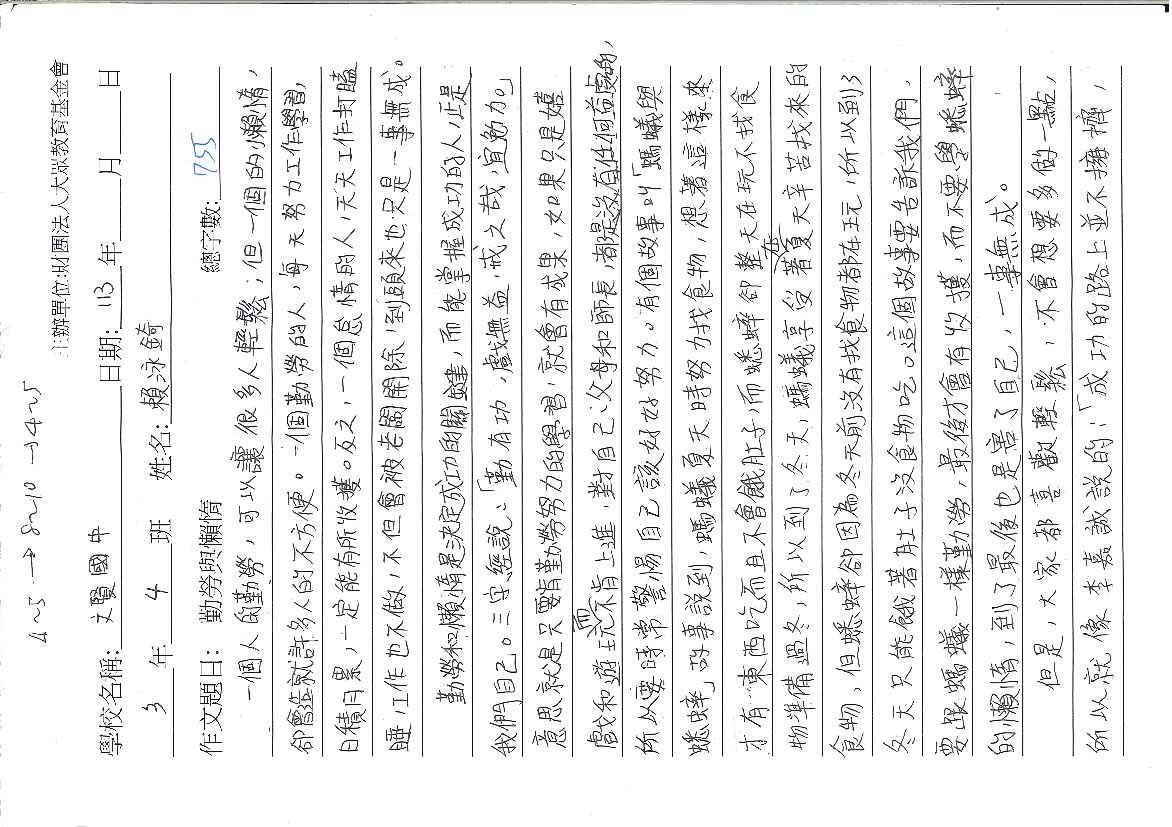 4~5 → 8~10 → 4~5
主辦單位:財團法人大眾教育基金會
學校名稱: 文賢國中 日期: 113 年 月 日
3 年 4 班 姓名: 賴泳錡
作文題目: 勤勞與懶惰 總字數: 755
一個人的勤勞，可以讓很多人輕鬆；但一個的懶惰，
卻會造就許多人的不方便。一個勤勞的人，每天努力工作學習，
日積月累，一定能有所收獲。反之，一個怠惰的人，天天工作打瞌
睡，工作也不做，不但會被老闆開除，到頭來也只是一事無成。
勤勞和懶惰是決定成功的關鍵，而能掌握成功的人，正是
我們自己。三字經說：「勤有功，戲無益，戒之哉，宜勉力。」
意思就是只要有勤勞努力的學習，就會有成果，如果只是嬉
戲和遊玩而不肯上進，對自己、父母和師長，都是沒有任何益處的，
所以要時常警惕自己該好好努力。有個故事叫「螞蟻與
蟋蟀」故事說到，螞蟻夏天時努力找食物，想著這樣冬
才有東西吃而且不會餓肚子，而蟋蟀卻整天在玩不找食
物準備過冬，所以到了冬天，螞蟻享受著在夏天辛苦找來的
食物，但蟋蟀卻因為冬天前沒有找食物都在玩，所以到了
冬天只能餓著肚子沒食物吃。這個故事要告訴我們，
要跟螞蟻一樣勤勞，最後才會有收獲，而不要學蟋蟀
的懶惰，到了最後也是害了自己，一事無成。
但是，大家都喜歡輕鬆，不會想要多做一點，
所以就像李嘉誠說的：「成功的路上並不擁擠，